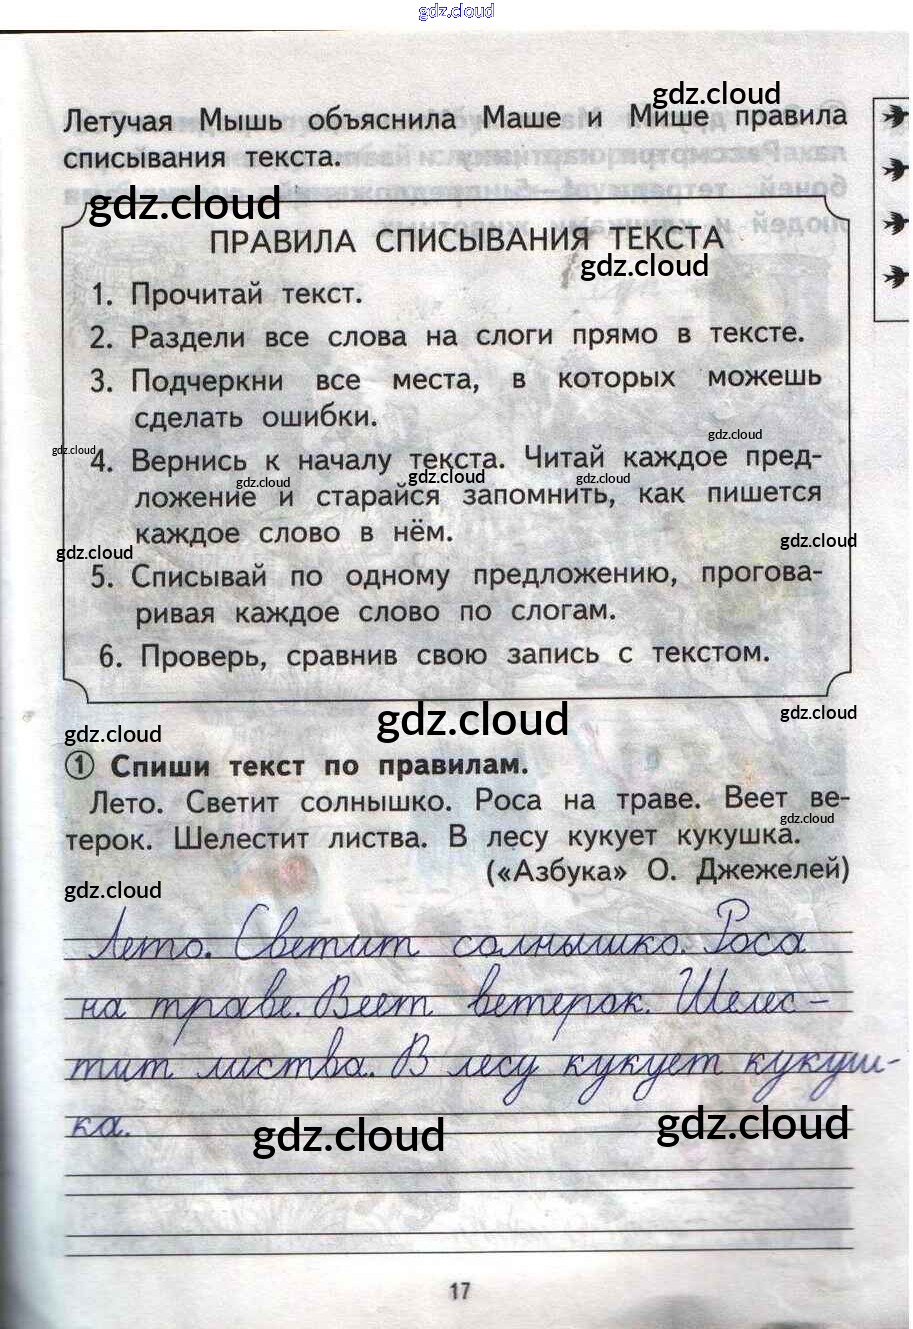 gdz.cloud
gdz.cloud
Летучая Мышь объяснила Маше и Мише правила
списывания текста.
gdz.cloud
ПРАВИЛА СПИСЫВАНИЯ ТЕКСТА
gdz.cloud
1. Прочитай текст.
2. Раздели все слова на слоги прямо в тексте.
3. Подчеркни все места, в которых можешь
сделать ошибки.
gdz.cloud
gdz.cloud
4. Вернись к началу текста. Читай каждое пред-
gdz.cloud gdz.cloud gdz.cloud
ложение и старайся запомнить, как пишется
каждое слово в нём.
gdz.cloud
gdz.cloud
5. Списывай по одному предложению, прогова-
ривая каждое слово по слогам.
6. Проверь, сравнив свою запись с текстом.
gdz.cloud
gdz.cloud
gdz.cloud
1 Спиши текст по правилам.
Лето. Светит солнышко. Роса на траве. Веет ве-
gdz.cloud
терок. Шелестит листва. В лесу кукует кукушка.
(«Азбука» О. Джежелей)
gdz.cloud
Лето. Светит солнышко. Роса
на траве. Веет ветерок. Шелес-
тит листва. В лесу кукует кукуш-
ка.
gdz.cloud
gdz.cloud
17